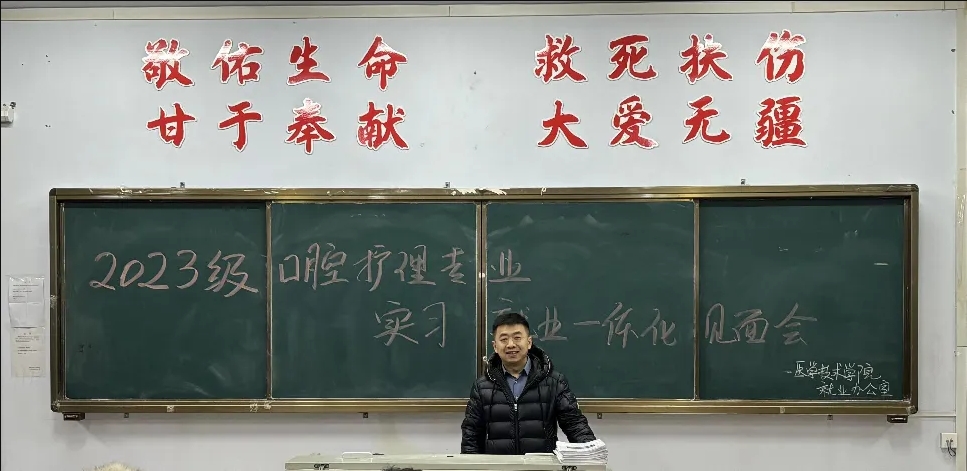 敬佑生命 救死扶伤
甘于奉献 大爱无疆
2023级口腔护理专业
实习 业一体化见面会
医学技术学院
就业办公室